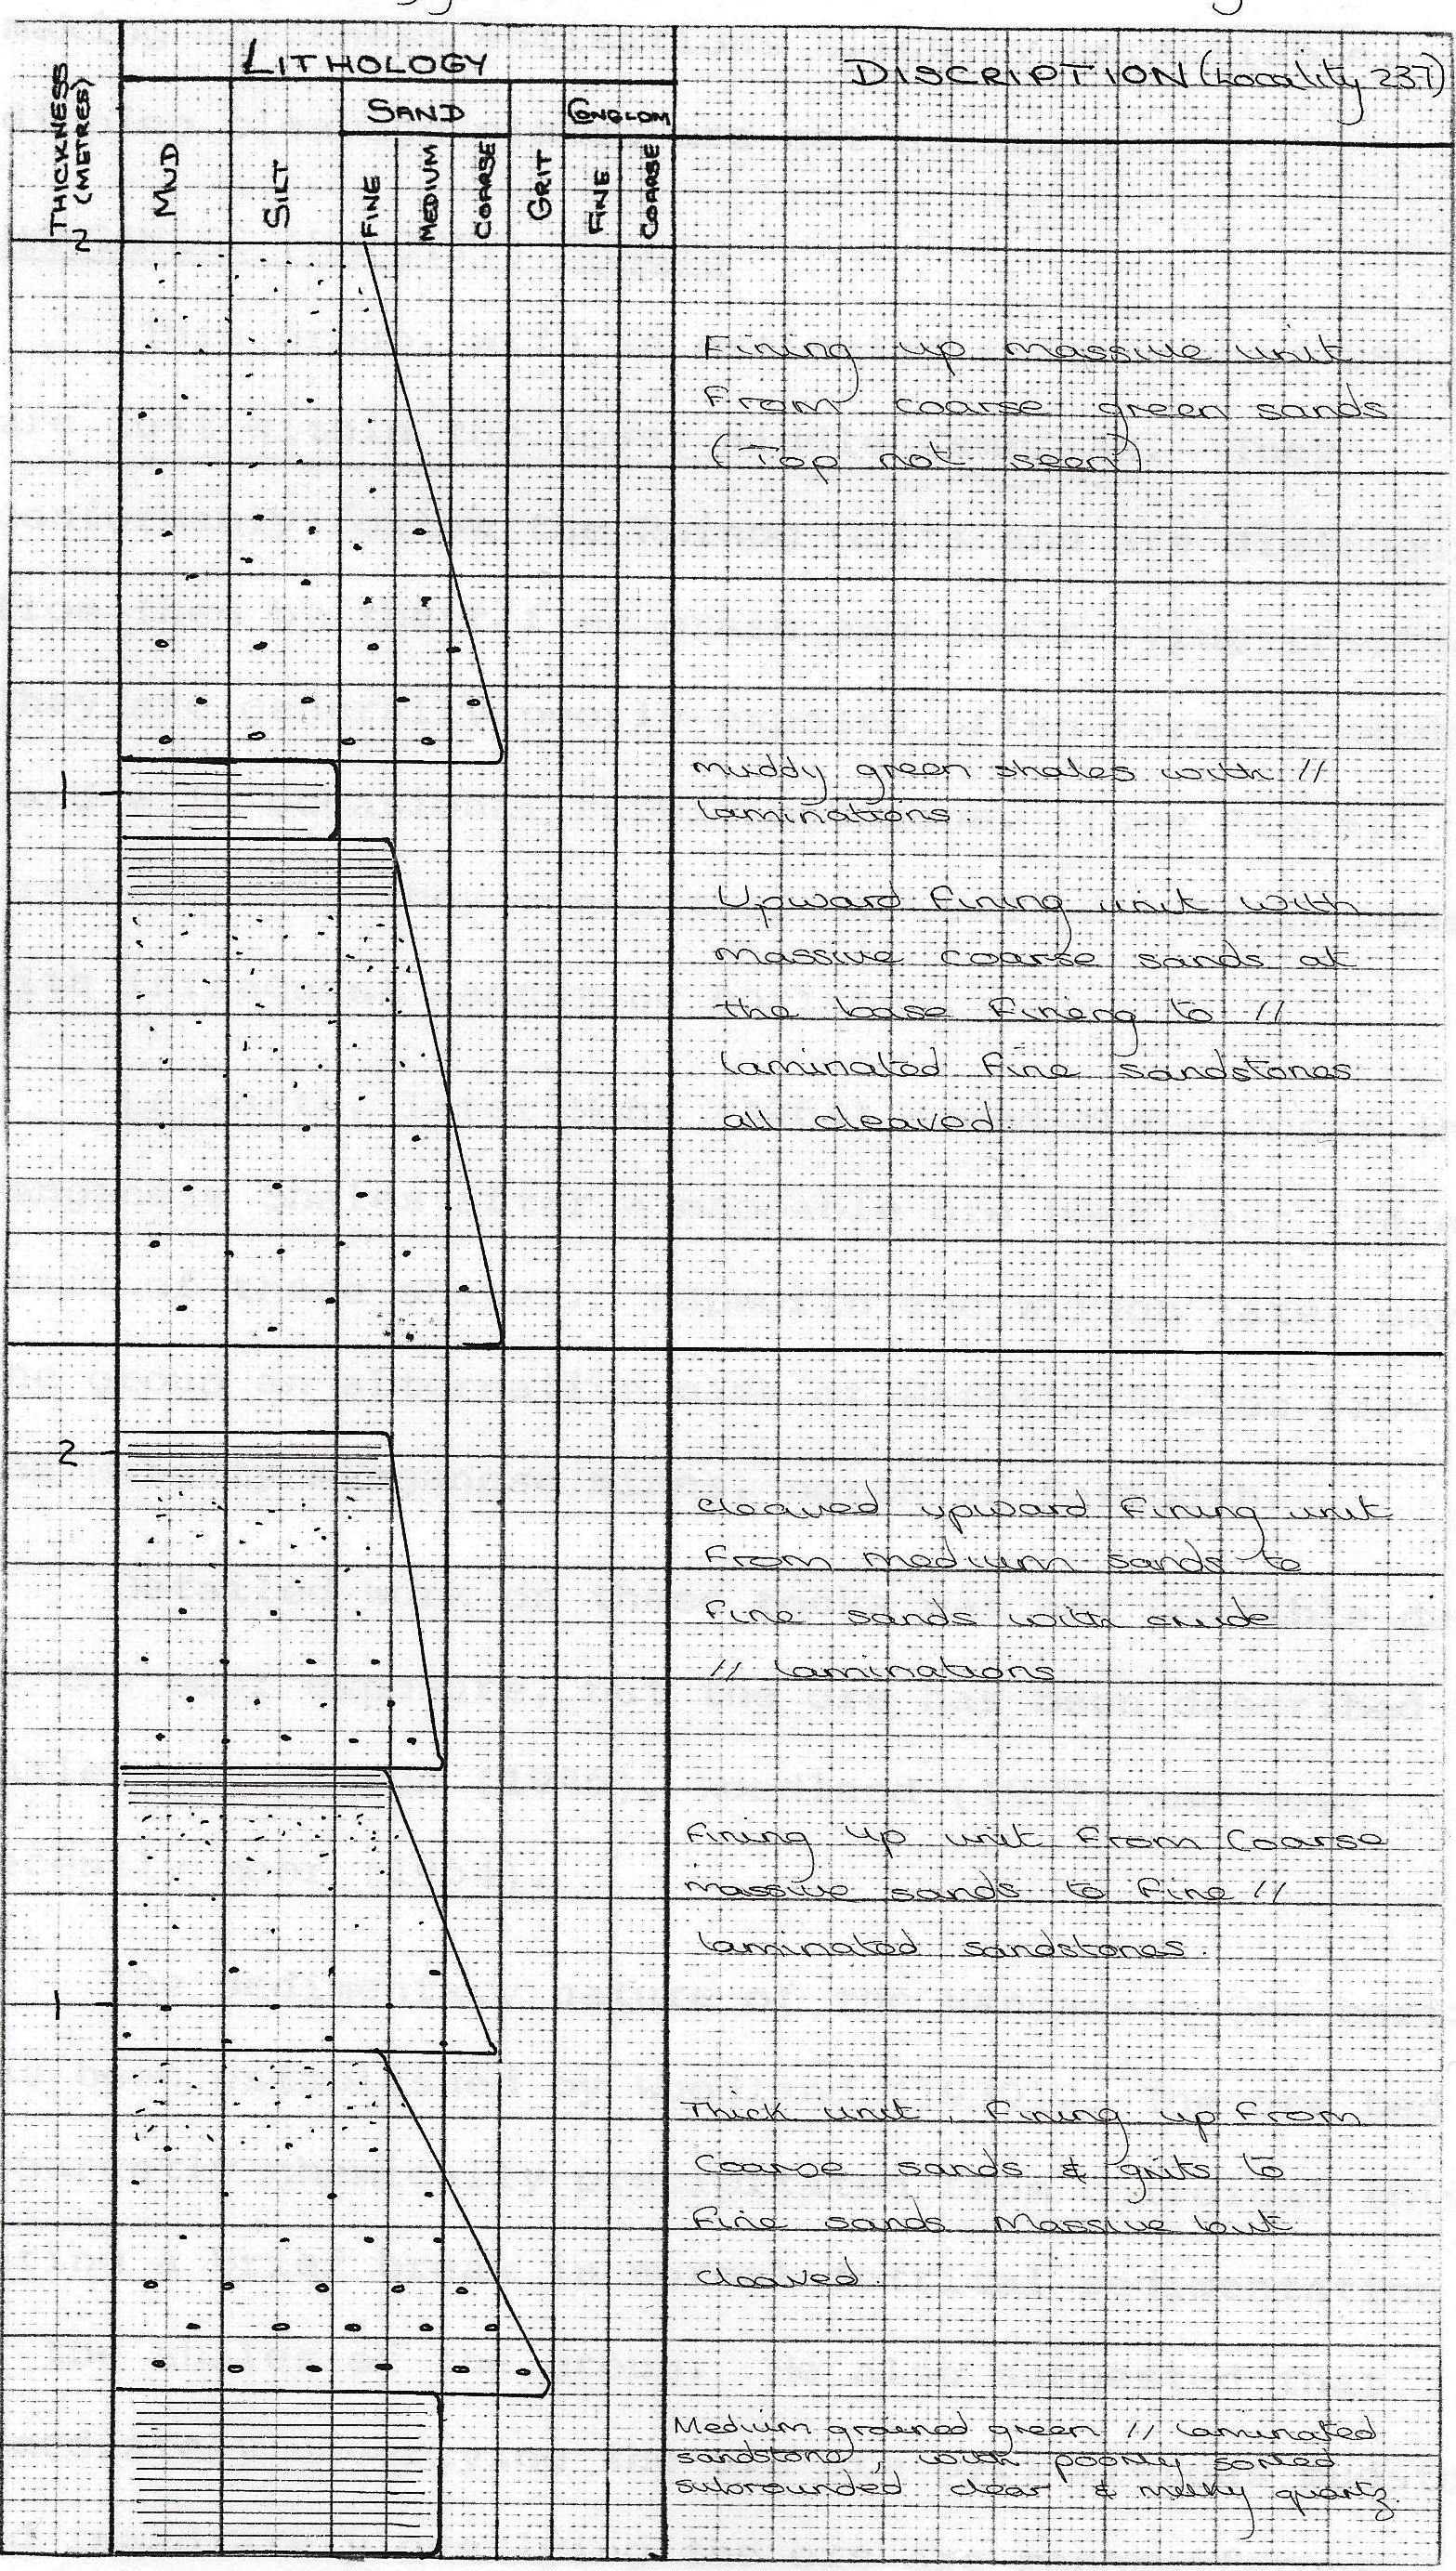 LITHOLOGY
DISCRIPTION (Locality 237)
THICKNESS
(METRES)
SAND
CONGLOM
MUD
SILT
FINE
MEDIUM
COARSE
GRIT
FINE
COARSE
2
Fining up massive unit
From coarse green sands
(Top not seen)
1
muddy green shales with //
laminations.
Upward fining unit with
massive coarse sands at
the base fineng to //
laminated fine sandstones
all cleaved.
2
cleaved upward fining unit
from medium sands to
fine sands with crude
// laminations
Fining up unit from Coarse
massive sands to fine //
laminated sandstones.
1
Thick unit, fining up from
Coarse sands & grits to
fine sands Massive but
cleaved.
Medium grained green // laminated
sandstone, with poorly sorted
subrounded clear & milky quartz.